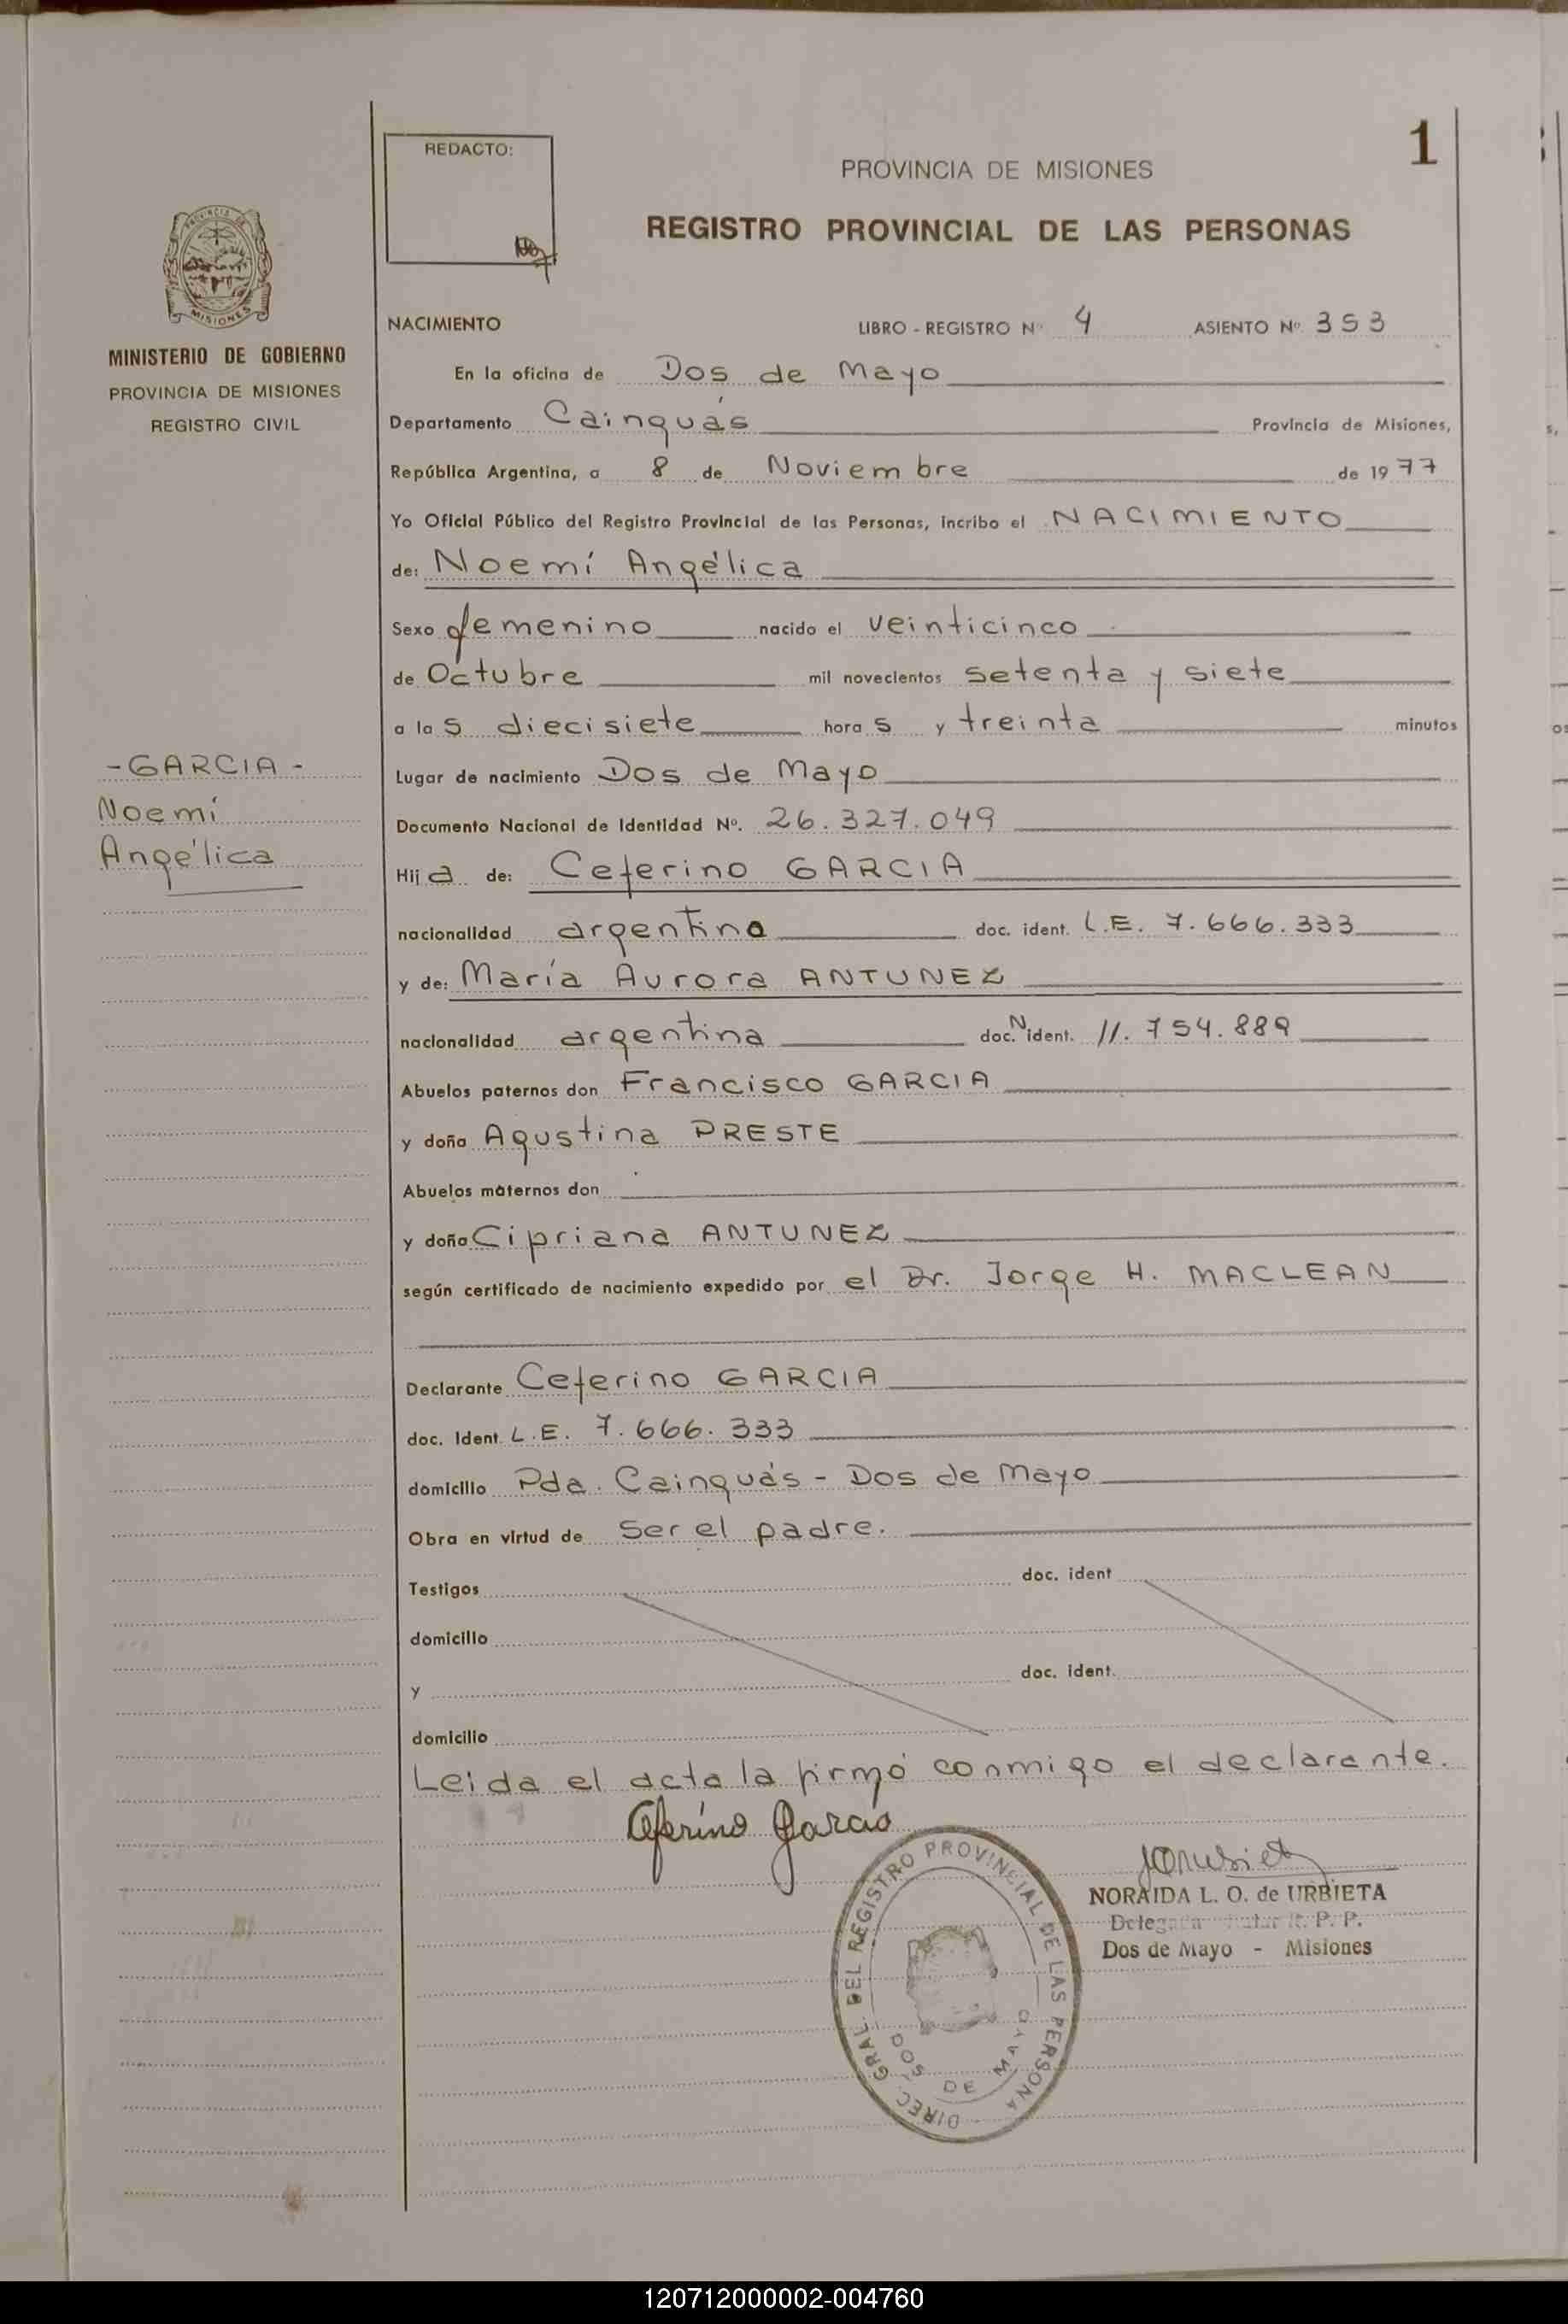 1
REDACTO:
PROVINCIA DE MISIONES
REGISTRO PROVINCIAL DE LAS PERSONAS
PROVINCIA DE
MISIONES
MINISTERIO DE GOBIERNO
PROVINCIA DE MISIONES
REGISTRO CIVIL
NACIMIENTO LIBRO - REGISTRO Nº 4 ASIENTO Nº 353
En la oficina de Dos de Mayo
Departamento Cainguás Provincia de Misiones,
República Argentina, a 8 de Noviembre de 1977
Yo Oficial Público del Registro Provincial de las Personas, incribo el NACIMIENTO
de: Noemí Angélica
Sexo femenino nacido el veinticinco
de Octubre mil novecientos setenta y siete
a las diecisiete horas y treinta minutos
Lugar de nacimiento Dos de Mayo
Documento Nacional de Identidad Nº. 26.327.049
Hija de: Ceferino GARCIA
nacionalidad argentino doc. ident. L.E. 7.666.333
y de: María Aurora ANTUNEZ
nacionalidad argentina doc. N ident. 11.754.889
Abuelos paternos don Francisco GARCIA
y doña Agustina PRESTE
Abuelos maternos don
y doña Cipriana ANTUNEZ
según certificado de nacimiento expedido por el Dr. Jorge H. MACLEAN
Declarante Ceferino GARCIA
doc. Ident. L.E. 7.666.333
domicilio Pda. Cainguás - Dos de Mayo
Obra en virtud de ser el padre.
Testigos doc. ident
domicilio
y doc. ident.
domicilio
Leida el acta la firmó conmigo el declarante.
-GARCIA-
Noemí
Angélica
Ceferino Garcia
NORAIDA L. O. de URBIETA
R. P. P.
Dos de Mayo - Misiones
DIREC GRAL. DEL REGISTRO PROVINCIAL DE LAS PERSONA
DOS DE MAYO
120712000002-004760